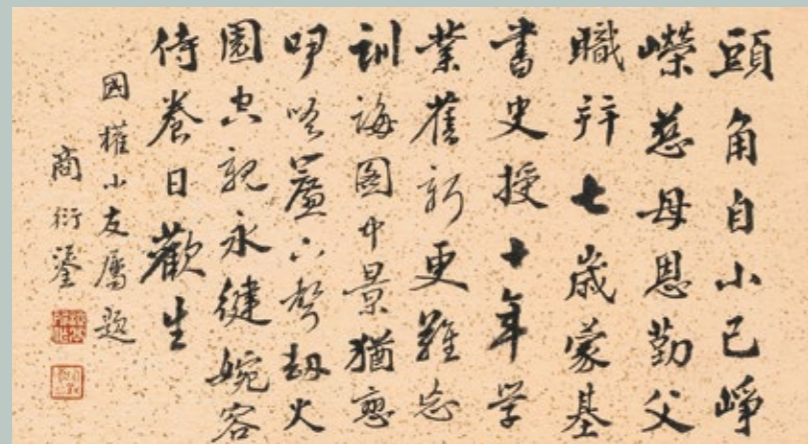 頭角自小已崢
嶸慈母恩勤父
職辛七歲蒙基
書史授十年学
業舊新更難忘
訓誨圖中景猶戀
咿唔簾下聲劫火
園空親永健婉容
侍養日歡生
國權小友屬題
商衍鎏